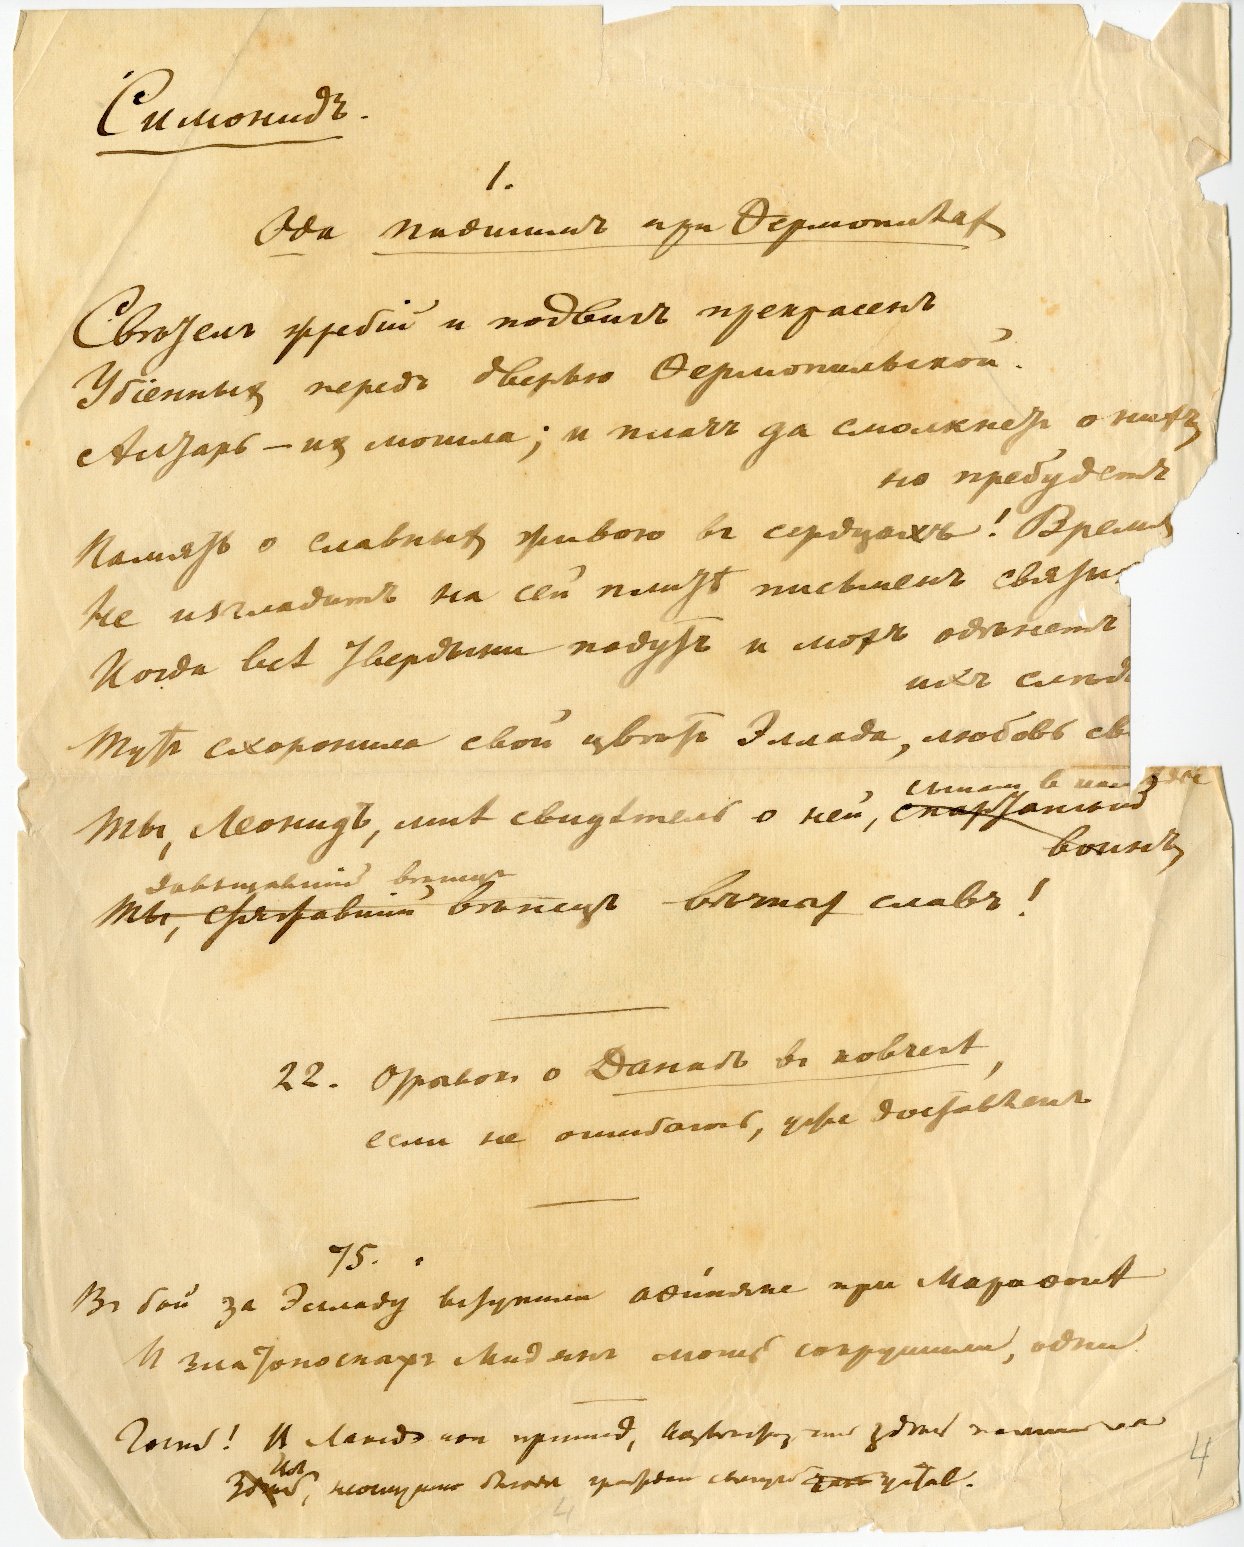 Симонидъ.
1.
Ода падшимъ при Ѳермопилахъ
Свѣтелъ жребій и подвигъ прекрасенъ
Убіенныхъ передъ дверью Ѳермопильской.
Алтарь – ихъ могила; и плачъ да смолкнетъ о нихъ,
но пребудетъ
Память о славныхъ живою въ сердцахъ! Время
Не изгладитъ на сей плитѣ письменъ святы
Когда всѣ твердыни падутъ и мохъ одѣнетъ
ихъ слѣд
Тутъ схоронила свой цвѣтъ Эллада, любовь св
въ
Ты, Леонидъ, мнѣ свидѣтель о ней, спартанскій
воинъ,
вѣнецъ
Ты, стяжавшій вѣнецъ вѣчной славы!
22. Отрывокъ о Данаѣ въ ковчегѣ,
если не ошибаюсь, уже доставленъ
75.
Въ бой за Элладу вступили аѳиняне при Мараѳонѣ
И златоносныхъ Мидянъ мощь сокрушили, одни.
Гость!
уставъ.
4
4